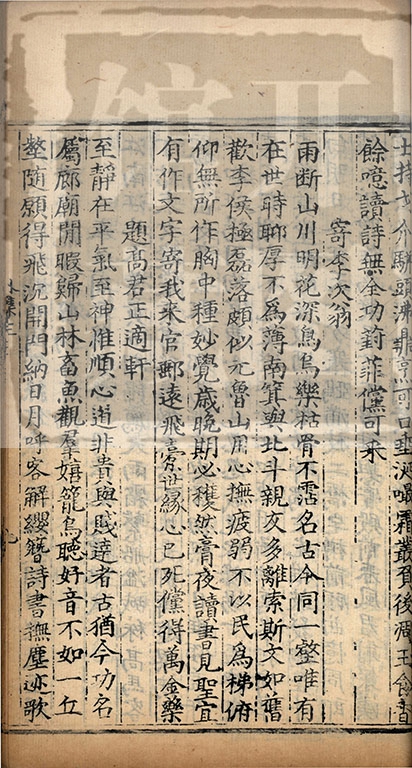 餘噫讀詩無全功葑菲儻可采
寄李次翁
雨断山川明花深鳥烏樂枯骨不霑名古今同一壑唯有
在世時聊厚不爲薄南箕與北斗親友多離索斯文如舊
歡李侯極磊落頗似元魯山用心撫疲弱不以民爲梯俯
仰無所作胸中種妙覺歳晚期必穫然膏夜讀書見聖宜
有作文字寄我來官郵遠飛
世縁心已死儻得萬金藥
題髙君正適軒
至靜在平氣至神惟順心道非貴與賤達者古猶今功名
屬廊廟閒暇歸山林畜魚觀羣嬉籠鳥聽好音不如一丘
壑隨願得飛沉開門納日月呼客解纓簪詩書撫塵迹歌